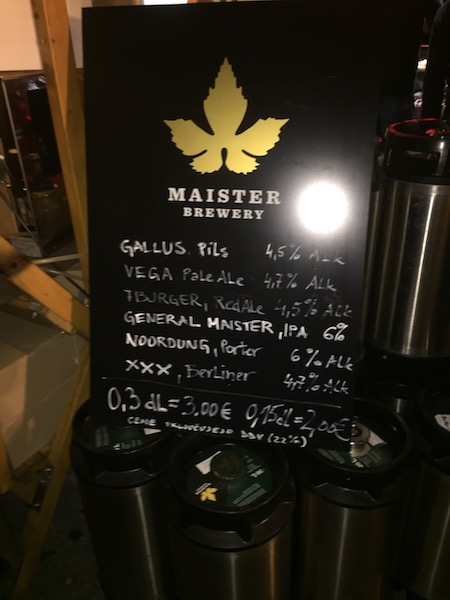 MAISTER
BREWERY
GALLUS, Pils 4,5% Alk
VEGA Pale Ale 4,7% Alk
7BURGER, Red Ale 4,5% Alk
GENERAL MAISTER, IPA 6%
NOORDUNG, Porter 6% Alk
XXX, Berliner 4,7% Alk
0,3 dL = 3,00€ 0,15dl = 2,00€
CENE VKLJUČUJEJO DDV (22%)